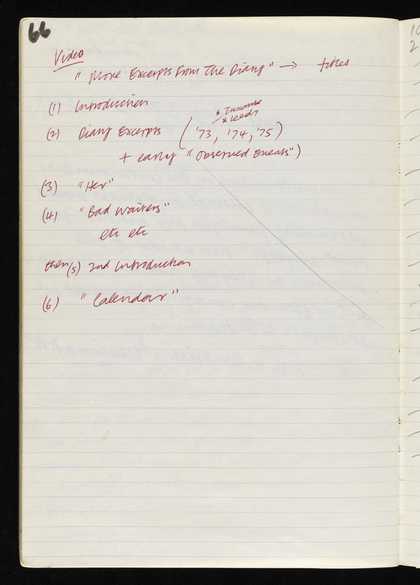 66
Video
"More Excerpts from The Diary" → titles
(1) Introduction
* Leeds
(2) Diary Excerpts ('73, '74, '75)
+ early "Observed Events")
(3) "Her"
(4) "Bad Waiters"
etc etc
then (5) 2nd Introduction
(6) "Calendar"